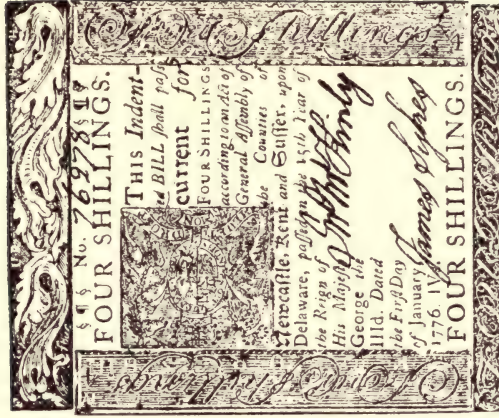 Four Shillings
§ ¶ § No. 76978 § ¶
FOUR SHILLINGS.
THIS Indent-
ed BILL ſhall paſs
current for
FOUR SHILLINGS
according to an Act of
General Aſſembly of
the Counties of
Newcaſtle, Kent and Suſſex, upon
Delaware, paſſed in the 15th Year of
the Reign of
His Majeſty
George the
IIId. Dated
the Firſt Day
of January
1776.
James Sykes
FOUR SHILLINGS.
Four Shillings